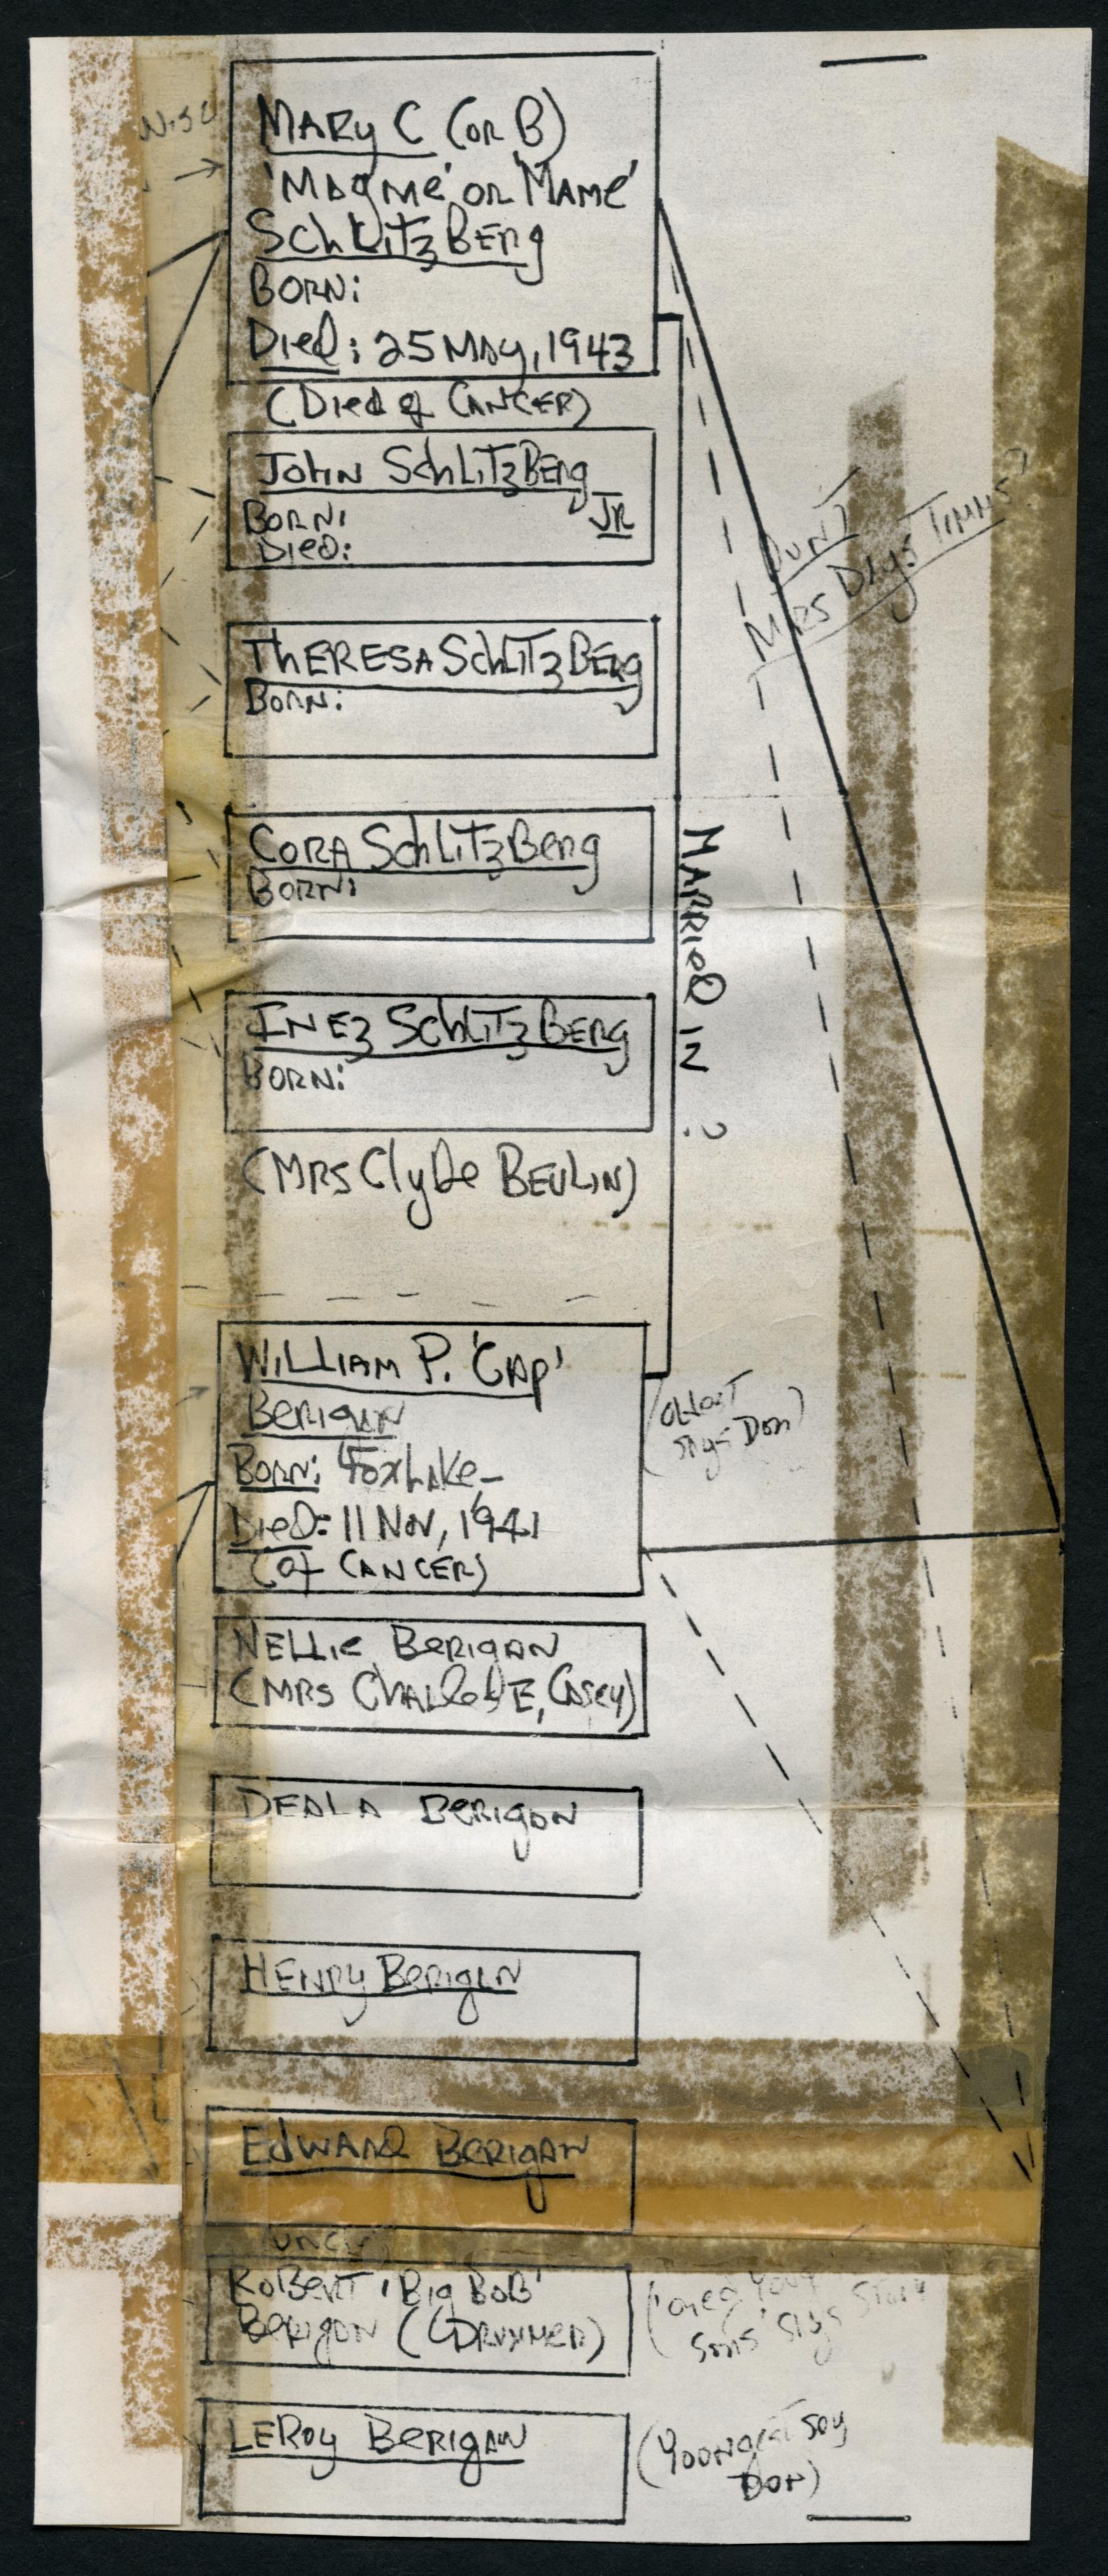 MARY C (OR B)
'MAYME' OR 'MAME'
SCHLITZBERG
BORN:
DIED: 25 MAY, 1943
(DIED of CANCER)
JOHN SCHLITZBERG
JR
BORN:
DIED:
AUNT
MRS DAYS TIMMS?
THERESA SCHLITZBERG
BORN:
CORA SCHLITZBERG
BORN:
MARRIED IN :
INEZ SCHLITZBERG
BORN:
(MRS Clyde BEULIN)
WILLIAM P. 'CAP'
BERIGAN
BORN: FOX LAKE-
DIED: 11 NOV, 1941
(of CANCER)
(OLDEST
SAYS DON)
NELLIE BERIGAN
(MRS CHARLES E, CASEY)
BERIGAN
HENRY BERIGAN
EDWARD BERIGAN
(UNCLE)
ROBERT 'BIG BOB'
BERIGAN (DRUMMER)
(DIED YOUNG
SAYS
LEROY BERIGAN
(YOUNGEST SAY
DON)